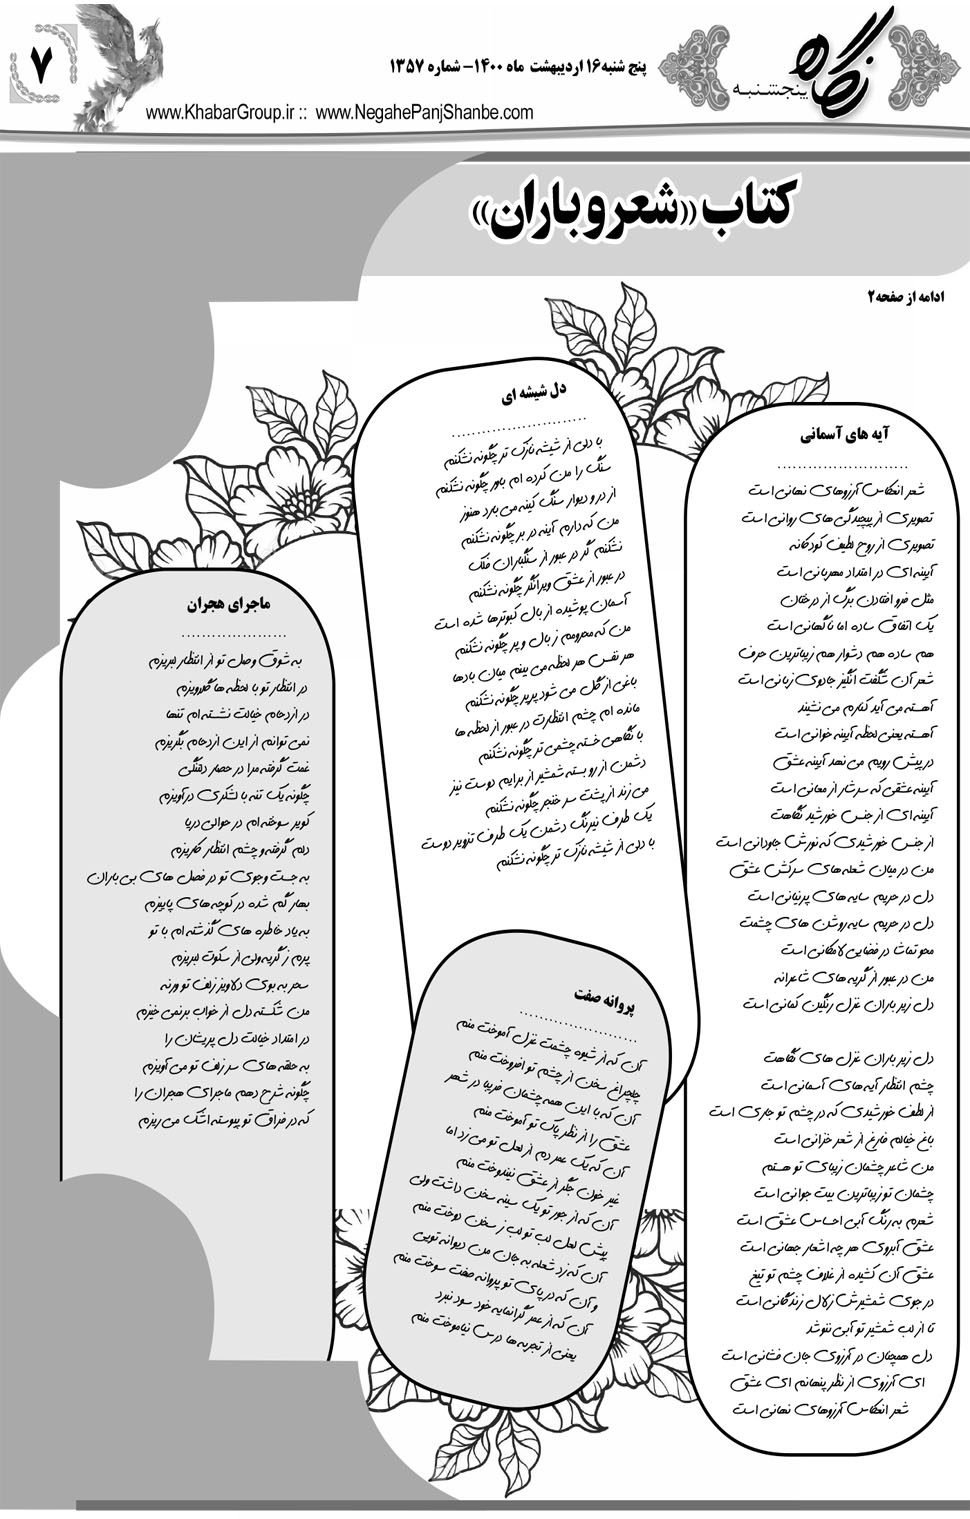 نگاه
پنجشنبه
پنج شنبه ۱۶ اردیبهشت ماه ۱۴۰۰- شماره ۱۳۵۷
۷
www.KhabarGroup.ir :: www.NegahePanjShanbe.com
کتاب «شعر و باران»
ادامه از صفحه۲
آیه های آسمانی
..........................
شعر انعکاس آرزوهای نهانی است
تصویری از پیچیدگی های روانی است
تصویری از روح لطیف کودکانه
آیینه‌ای در امتداد مهربانی است
مثل فرو افتادن برگ از درختان
یک اتفاق ساده اما ناگهانی است
هم ساده هم دشوار هم زیباترین حرف
شعر آن شگفت انگیز جادوی زبانی است
آهسته می آید کنارم می نشیند
آهسته یعنی لحظه آیینه خوانی است
در پیش رویم می نهد آیینه عشق
آیینه عشقی که سرشار از معانی است
آیینه‌ای از جنس خورشید نگاهت
از جنس خورشیدی که نورش جاودانی است
من در میان شعله های سرکش عشق
دل در حریم سایه های پرنیانی است
دل در حریم سایه روشن های چشمت
محو تماشا در فضایی لامکانی است
من در عبور از گریه های شاعرانه
دل زیر باران غزل رنگین کمانی است
دل زیر باران غزل های نگاهت
چشم انتظار آیه های آسمانی است
از لطف خورشیدی که در چشم تو جاری است
باغ خیالم فارغ از شعر خزانی است
من شاعر چشمان زیبای تو هستم
چشمان تو زیباترین بیت جوانی است
شعرم به رنگ آبی احساس عشق است
عشق آبروی هر چه اشعار جهانی است
عشق آن کشیده از غلاف چشم تو تیغ
در جوی شمشیرش زلال زندگانی است
تا از لب شمشیر تو آبی ننوشد
دل همچنان در آرزوی جان فشانی است
ای آرزوی از نظر پنهانم ای عشق
شعر انعکاس آرزوهای نهانی است
دل شیشه ای
..........................
با دلی از شیشه نازک تر چگونه نشکنم
سنگ را من کرده ام باور چگونه نشکنم
از در و دیوار سنگ کینه می بارد هنوز
من که دارم آینه در بر چگونه نشکنم
نشکنم گر در عبور از سنگباران فلک
در عبور از عشق ویرانگر چگونه نشکنم
آسمان پوشیده از بال کبوترها شده است
من که محرومم ز بال و پر چگونه نشکنم
هر نفس هر لحظه می بینم میان بادها
باغی از گل می شود پرپر چگونه نشکنم
مانده ام چشم انتظارت در عبور از لحظه ها
با نگاهی خسته چشمی تر چگونه نشکنم
دشمن از رو بسته شمشیر از برایم دوست نیز
می زند از پشت سر خنجر چگونه نشکنم
یک طرف نیرنگ دشمن یک طرف تزویر دوست
با دلی از شیشه نازک تر چگونه نشکنم
پروانه صفت
..........................
آن که از شیوه چشمت غزل آموخت منم
چلچراغ سخن از چشم تو افروخت منم
آن که با این همه چشمان فریبا در شهر
عشق را از نظر پاک تو آموخت منم
آن که یک عمر دم از لعل تو می زد اما
غیر خون جگر از عشق نیندوخت منم
آن که از جور تو یک سینه سخن داشت ولی
پیش لعل لب تو لب ز سخن دوخت منم
آن که زد شعله به جان من دیوانه تویی
و آن که در پای تو پروانه صفت سوخت منم
آن که از عمر گرانمایه خود سود نبرد
یعنی از تجربه ها درس نیاموخت منم
ماجرای هجران
.....................
به شوق وصل تو از انتظار لبریزم
در انتظار تو با لحظه ها گلاویزم
در ازدحام خیالت نشسته ام تنها
نمی توانم از این ازدحام بگریزم
غمت گرفته مرا در حصار دلتنگی
چگونه یک تنه با لشکری درآویزم
کویر سوخته ام در حوالی دریا
دلم گرفته و چشم انتظار کاریزم
به جست وجوی تو در فصل های بی باران
بهار گم شده در کوچه های پاییزم
به یاد خاطره های گذشته ام با تو
پرم ز گریه ولی از سکوت لبریزم
سحر به بوی دلاویز زلف تو ورنه
من شکسته دل از خواب برنمی خیزم
در امتداد خیالت دل پریشان را
به حلقه های سر زلف تو می آویزم
چگونه شرح دهم ماجرای هجران را
که در فراق تو پیوسته اشک می ریزم